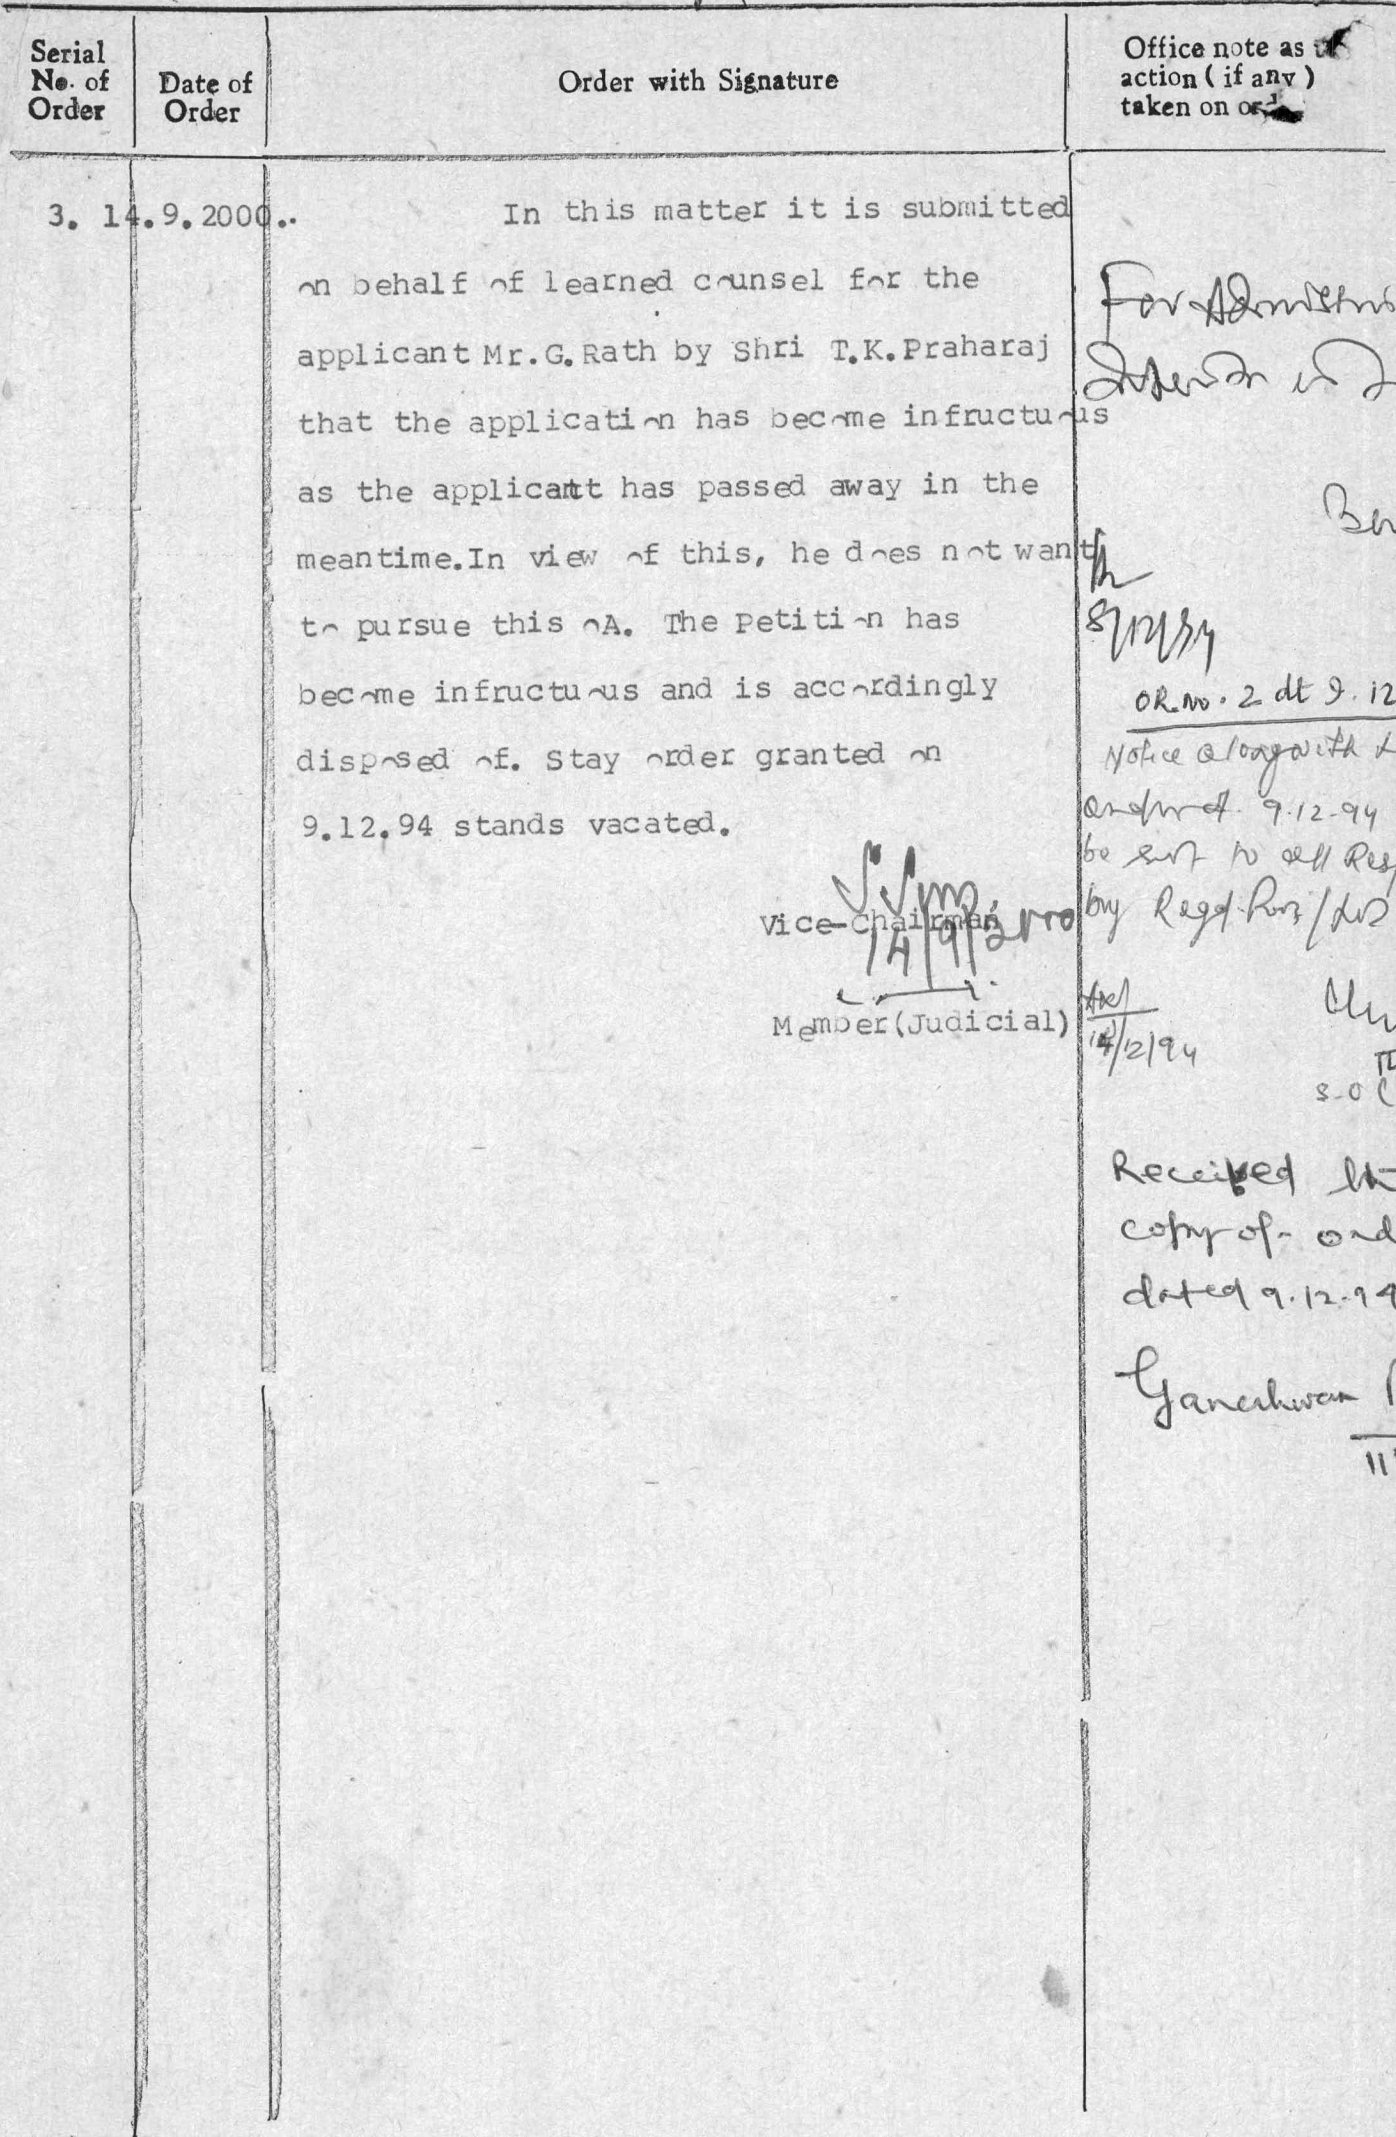 Serial
No. of
Order
Date of
Order
Order with Signature
Office note as
action ( if any )
taken on
3. 14.9.2000..
In this matter it is submitted
on behalf of learned counsel for the
applicant Mr.G.Rath by Shri T.K.Praharaj
that the application has become infructuous
as the applicant has passed away in the
meantime.In view of this, he does not want
to pursue this OA. The Petition has
become infructuous and is accordingly
disposed of. Stay order granted on
9.12.94 stands vacated.
Vice-Chairman
14/9/2000
Member(Judicial)
For
8/12/94
OR.No. 2 dt 9.12
Notice alongwith
9.12.94
be sent to all
by Regd.
14/12/94
S.O (
Received
copy of
dated 9.12.94
Ganeshwar